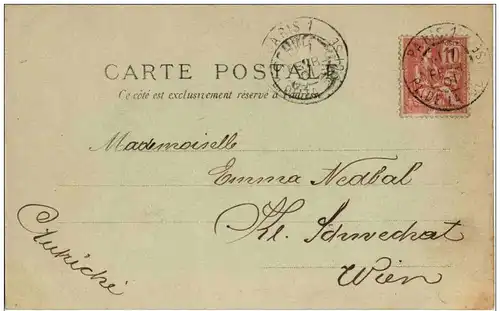 CARTE POSTALE
Ce côté est exclusivement réservé à l'adresse
Mademoiselle
Emma Nedbal
Kl. Schwechat
Wien
PARIS 1
PARIS 1
10